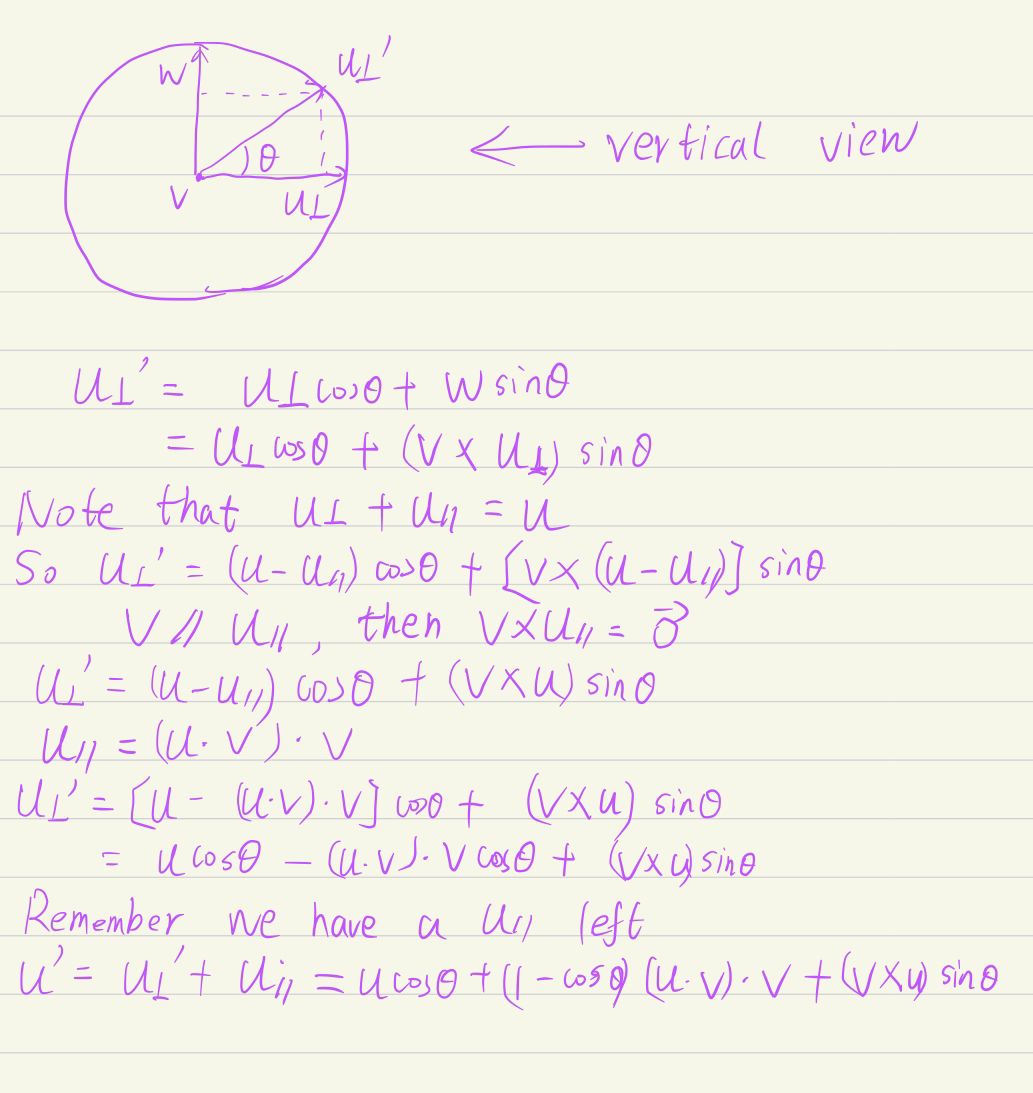 W u⊥'
θ
V u⊥
← vertical view
u⊥' = u⊥cosθ + w sinθ
= u⊥cosθ + (v × u⊥) sinθ
Note that u⊥ + u// = u
So u⊥' = (u - u//) cosθ + [v × (u - u//)] sinθ
v // u//, then v×u// = 0⃗
u⊥' = (u - u//) cosθ + (v×u) sinθ
u// = (u·v)·v
u⊥' = [u - (u·v)·v] cosθ + (v×u) sinθ
= u cosθ - (u·v)·v cosθ + (v×u) sinθ
Remember we have a u// left
u' = u⊥' + u// = u cosθ + (1 - cosθ)(u·v)·v + (v×u) sinθ